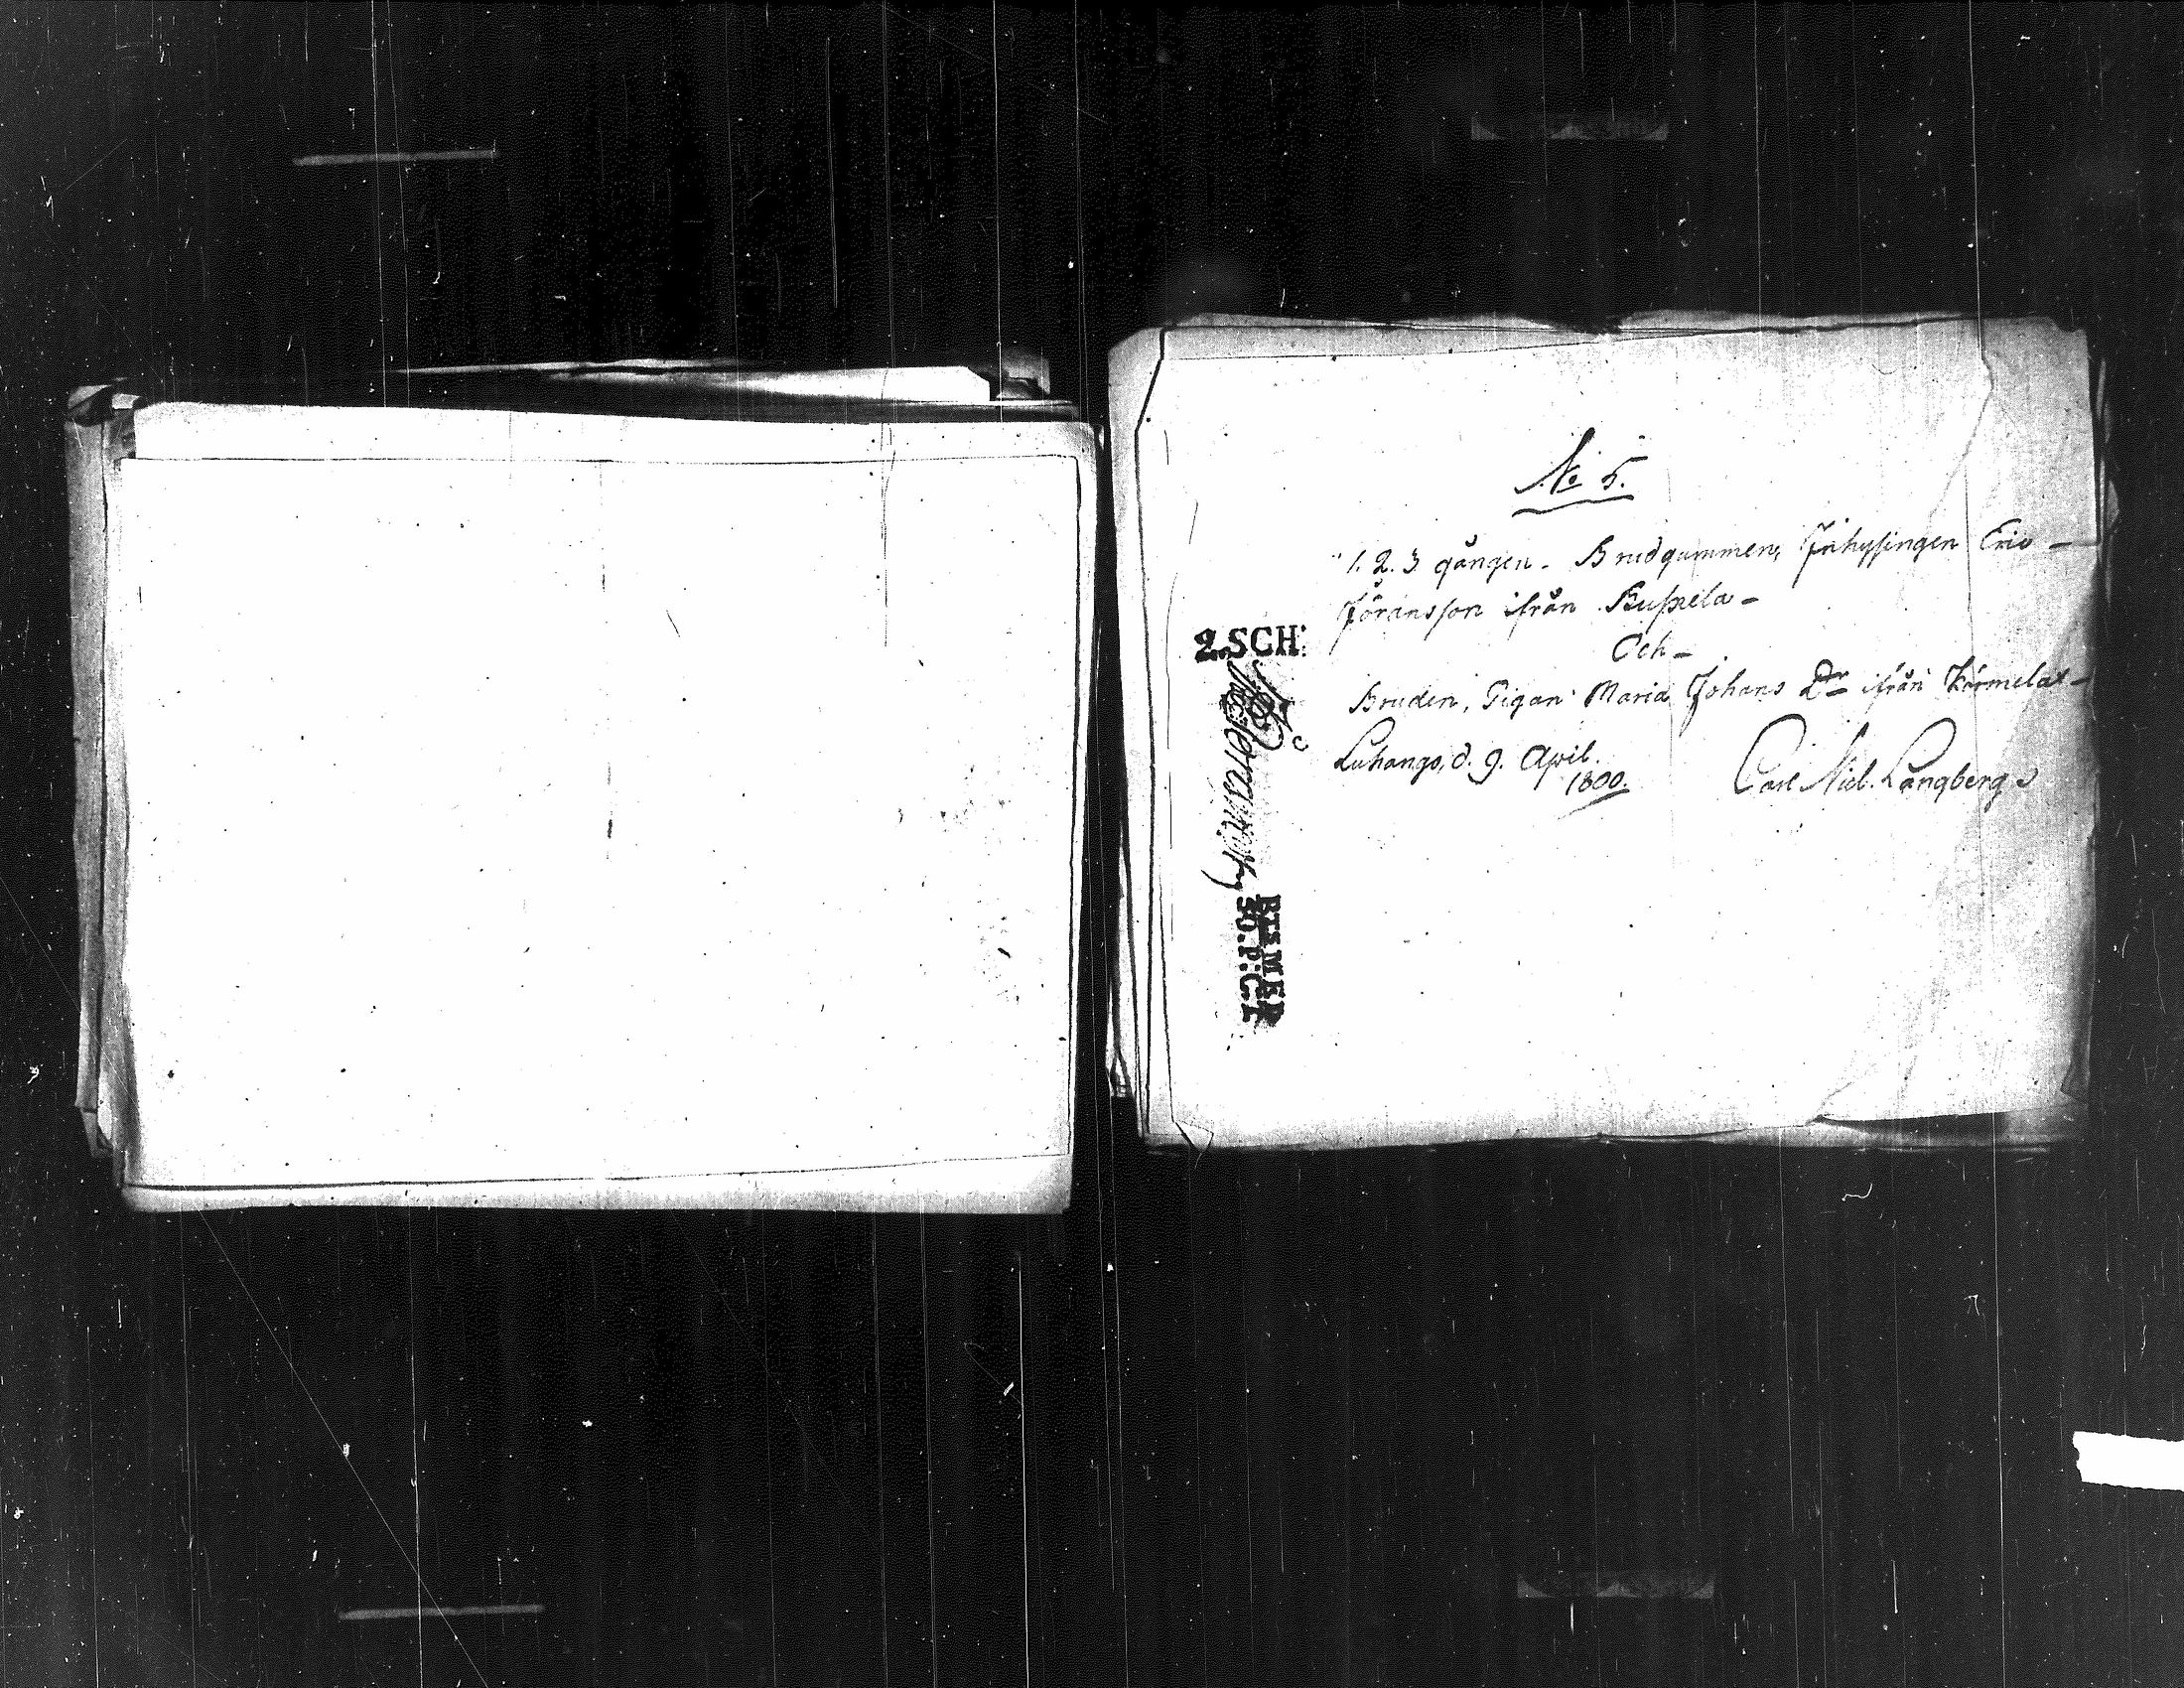 No 5.
1. 2. 3 gången. Brudgummen, Inhysingen Eric
Jöransson ifrån
Och
Bruden, Pigan Maria Johans Dr ifrån Kärmelax
Luhango, d. 9. April.
1800.
Carl Nicl. Langberg
2. SCH:
RTSMER
SO.P:C.L